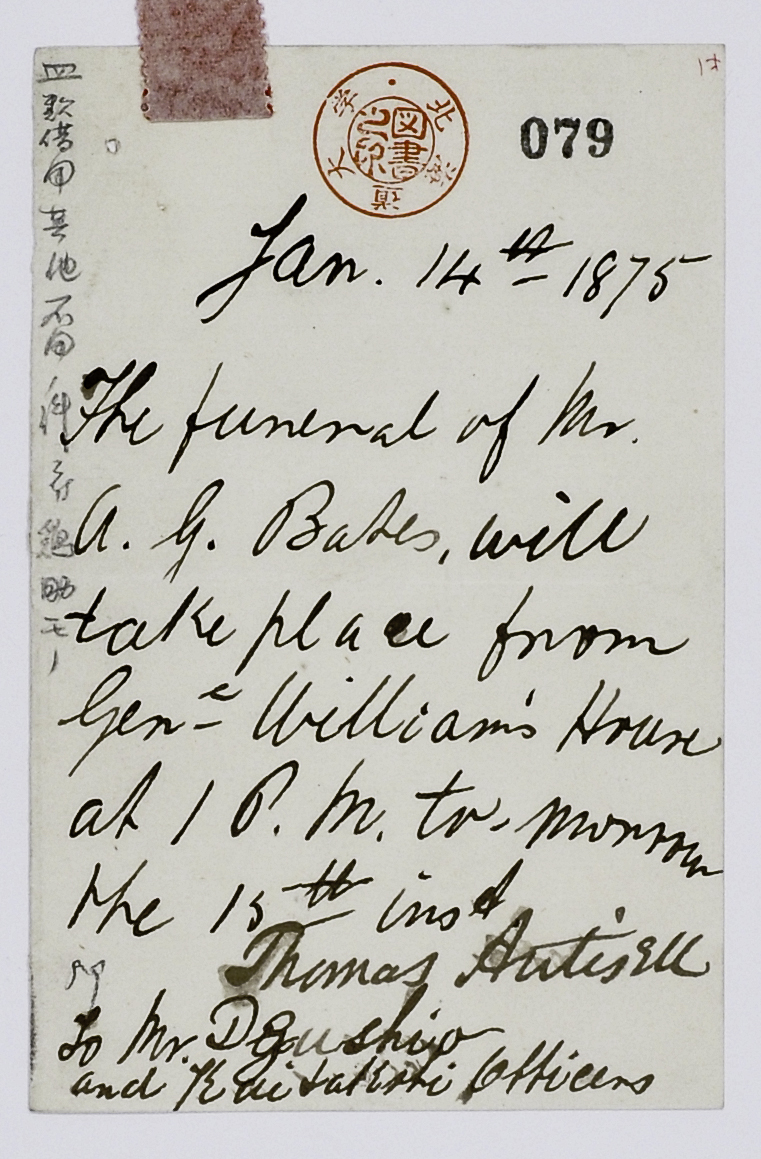 北海道大学
図書之印
079
Jan. 14th 1875
The funeral of Mr.
A. G. Bates, will
take place from
Genl William's House
at 1 P. M. to-morrow
the 15th inst
Thomas Antisell
To Mr. Degushio
and Kaitakshi Officers